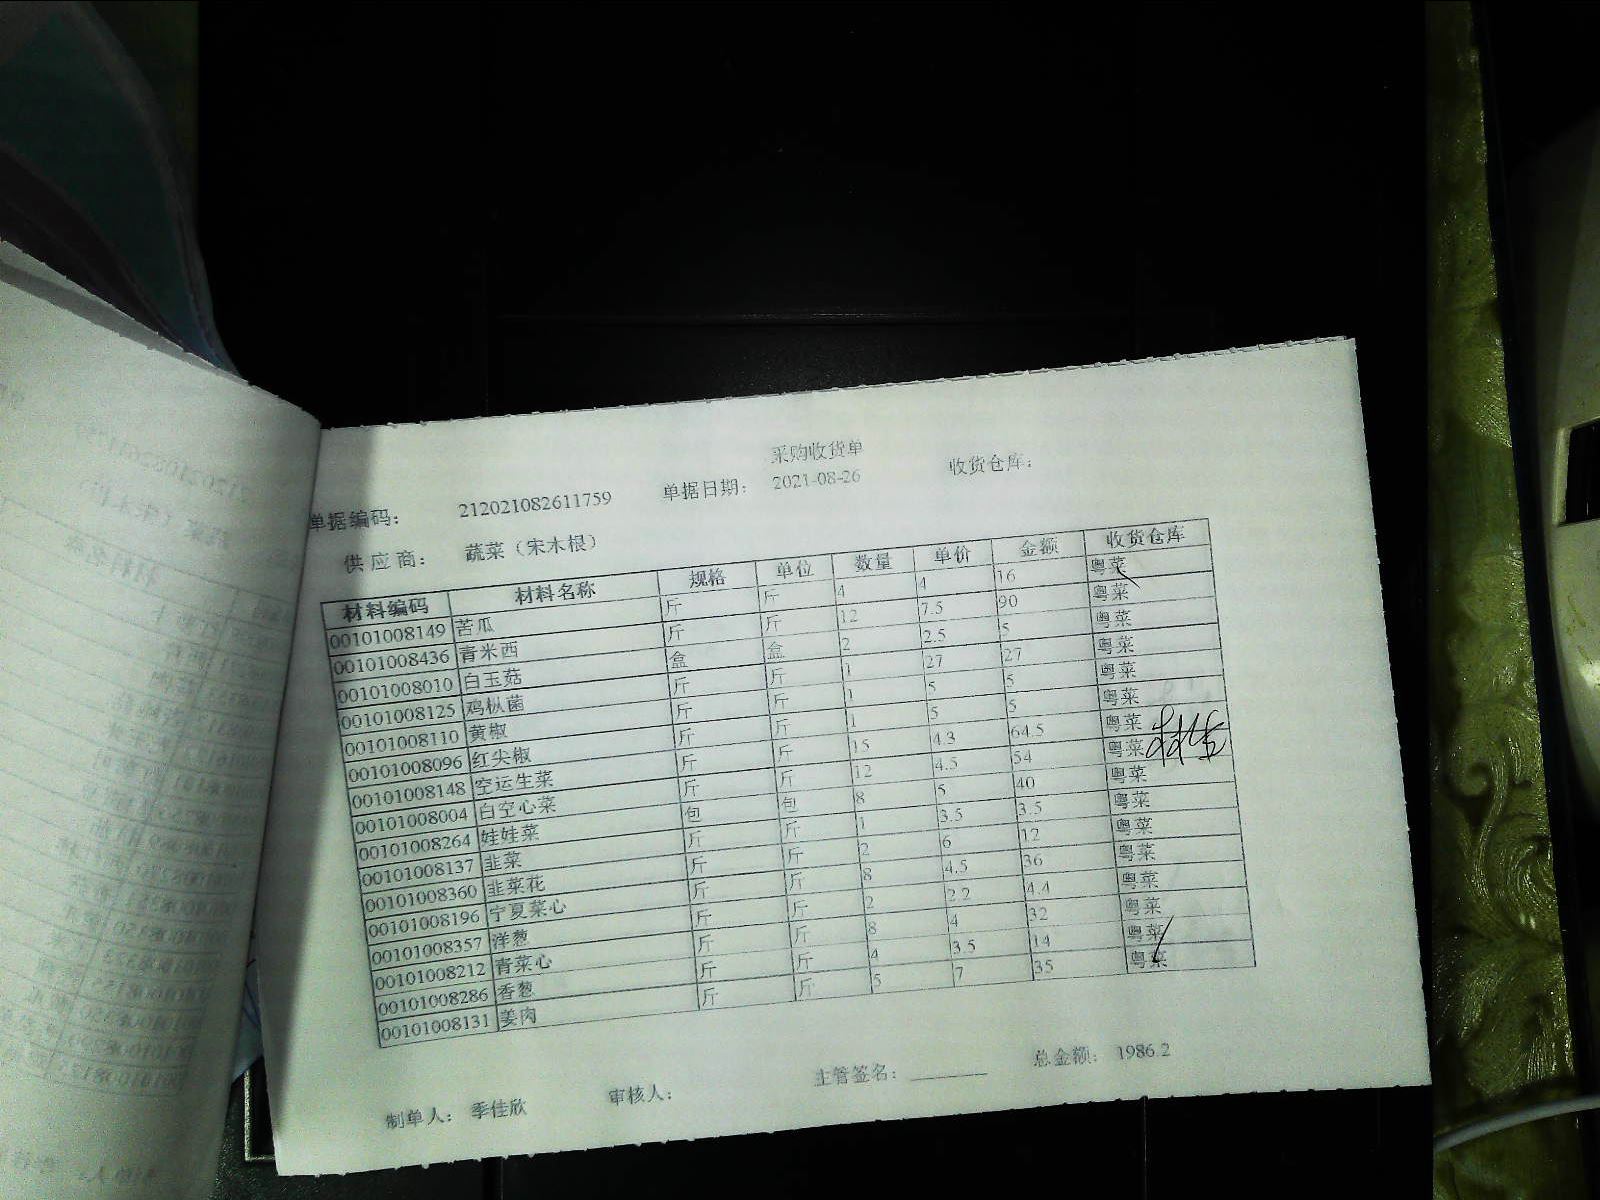 采购收货单
单据编码： 212021082611759 单据日期： 2021-08-26 收货仓库：
供应商： 蔬菜（宋木根）
材料编码 材料名称 规格 单位 数量 单价 金额 收货仓库
00101008149 苦瓜 斤 斤 4 4 16 粤菜
00101008436 青米西 斤 斤 12 7.5 90 粤菜
00101008010 白玉菇 盒 盒 2 2.5 5 粤菜
00101008125 鸡枞菌 斤 斤 1 27 27 粤菜
00101008110 黄椒 斤 斤 1 5 5 粤菜
00101008096 红尖椒 斤 斤 1 5 5 粤菜
00101008148 空运生菜 斤 斤 15 4.3 64.5 粤菜
00101008004 白空心菜 斤 斤 12 4.5 54 粤菜
00101008264 娃娃菜 包 包 8 5 40 粤菜
00101008137 韭菜 斤 斤 1 3.5 3.5 粤菜
00101008360 韭菜花 斤 斤 2 6 12 粤菜
00101008196 宁夏菜心 斤 斤 8 4.5 36 粤菜
00101008357 洋葱 斤 斤 2 2.2 4.4 粤菜
00101008212 青菜心 斤 斤 8 4 32 粤菜
00101008286 香葱 斤 斤 4 3.5 14 粤菜
00101008131 姜肉 斤 斤 5 7 35 粤菜
制单人： 季佳欣 审核人： 主管签名： 总金额： 1986.2